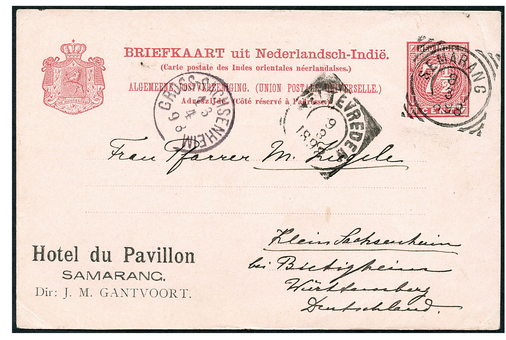 BRIEFKAART uit Nederlandsch-Indië.
(Carte postale des Indes orientales néerlandaises.)
ALGEMEENE POSTVEREENIGING. (UNION POSTALE UNIVERSELLE.)
Adreszijde. (Côté réservé à l'adresse.)
7½
SEMARANG
8
3
1898
GROSS-SACHSENHEIM
13
4
98
WELTEVREDEN
9
3
1898
Frau Pfarrer M. Ziegele
Klein Sachsenheim
bei Bietigheim
Württemberg
Deutschland.
Hotel du Pavillon
SAMARANG.
Dir: J. M. GANTVOORT.